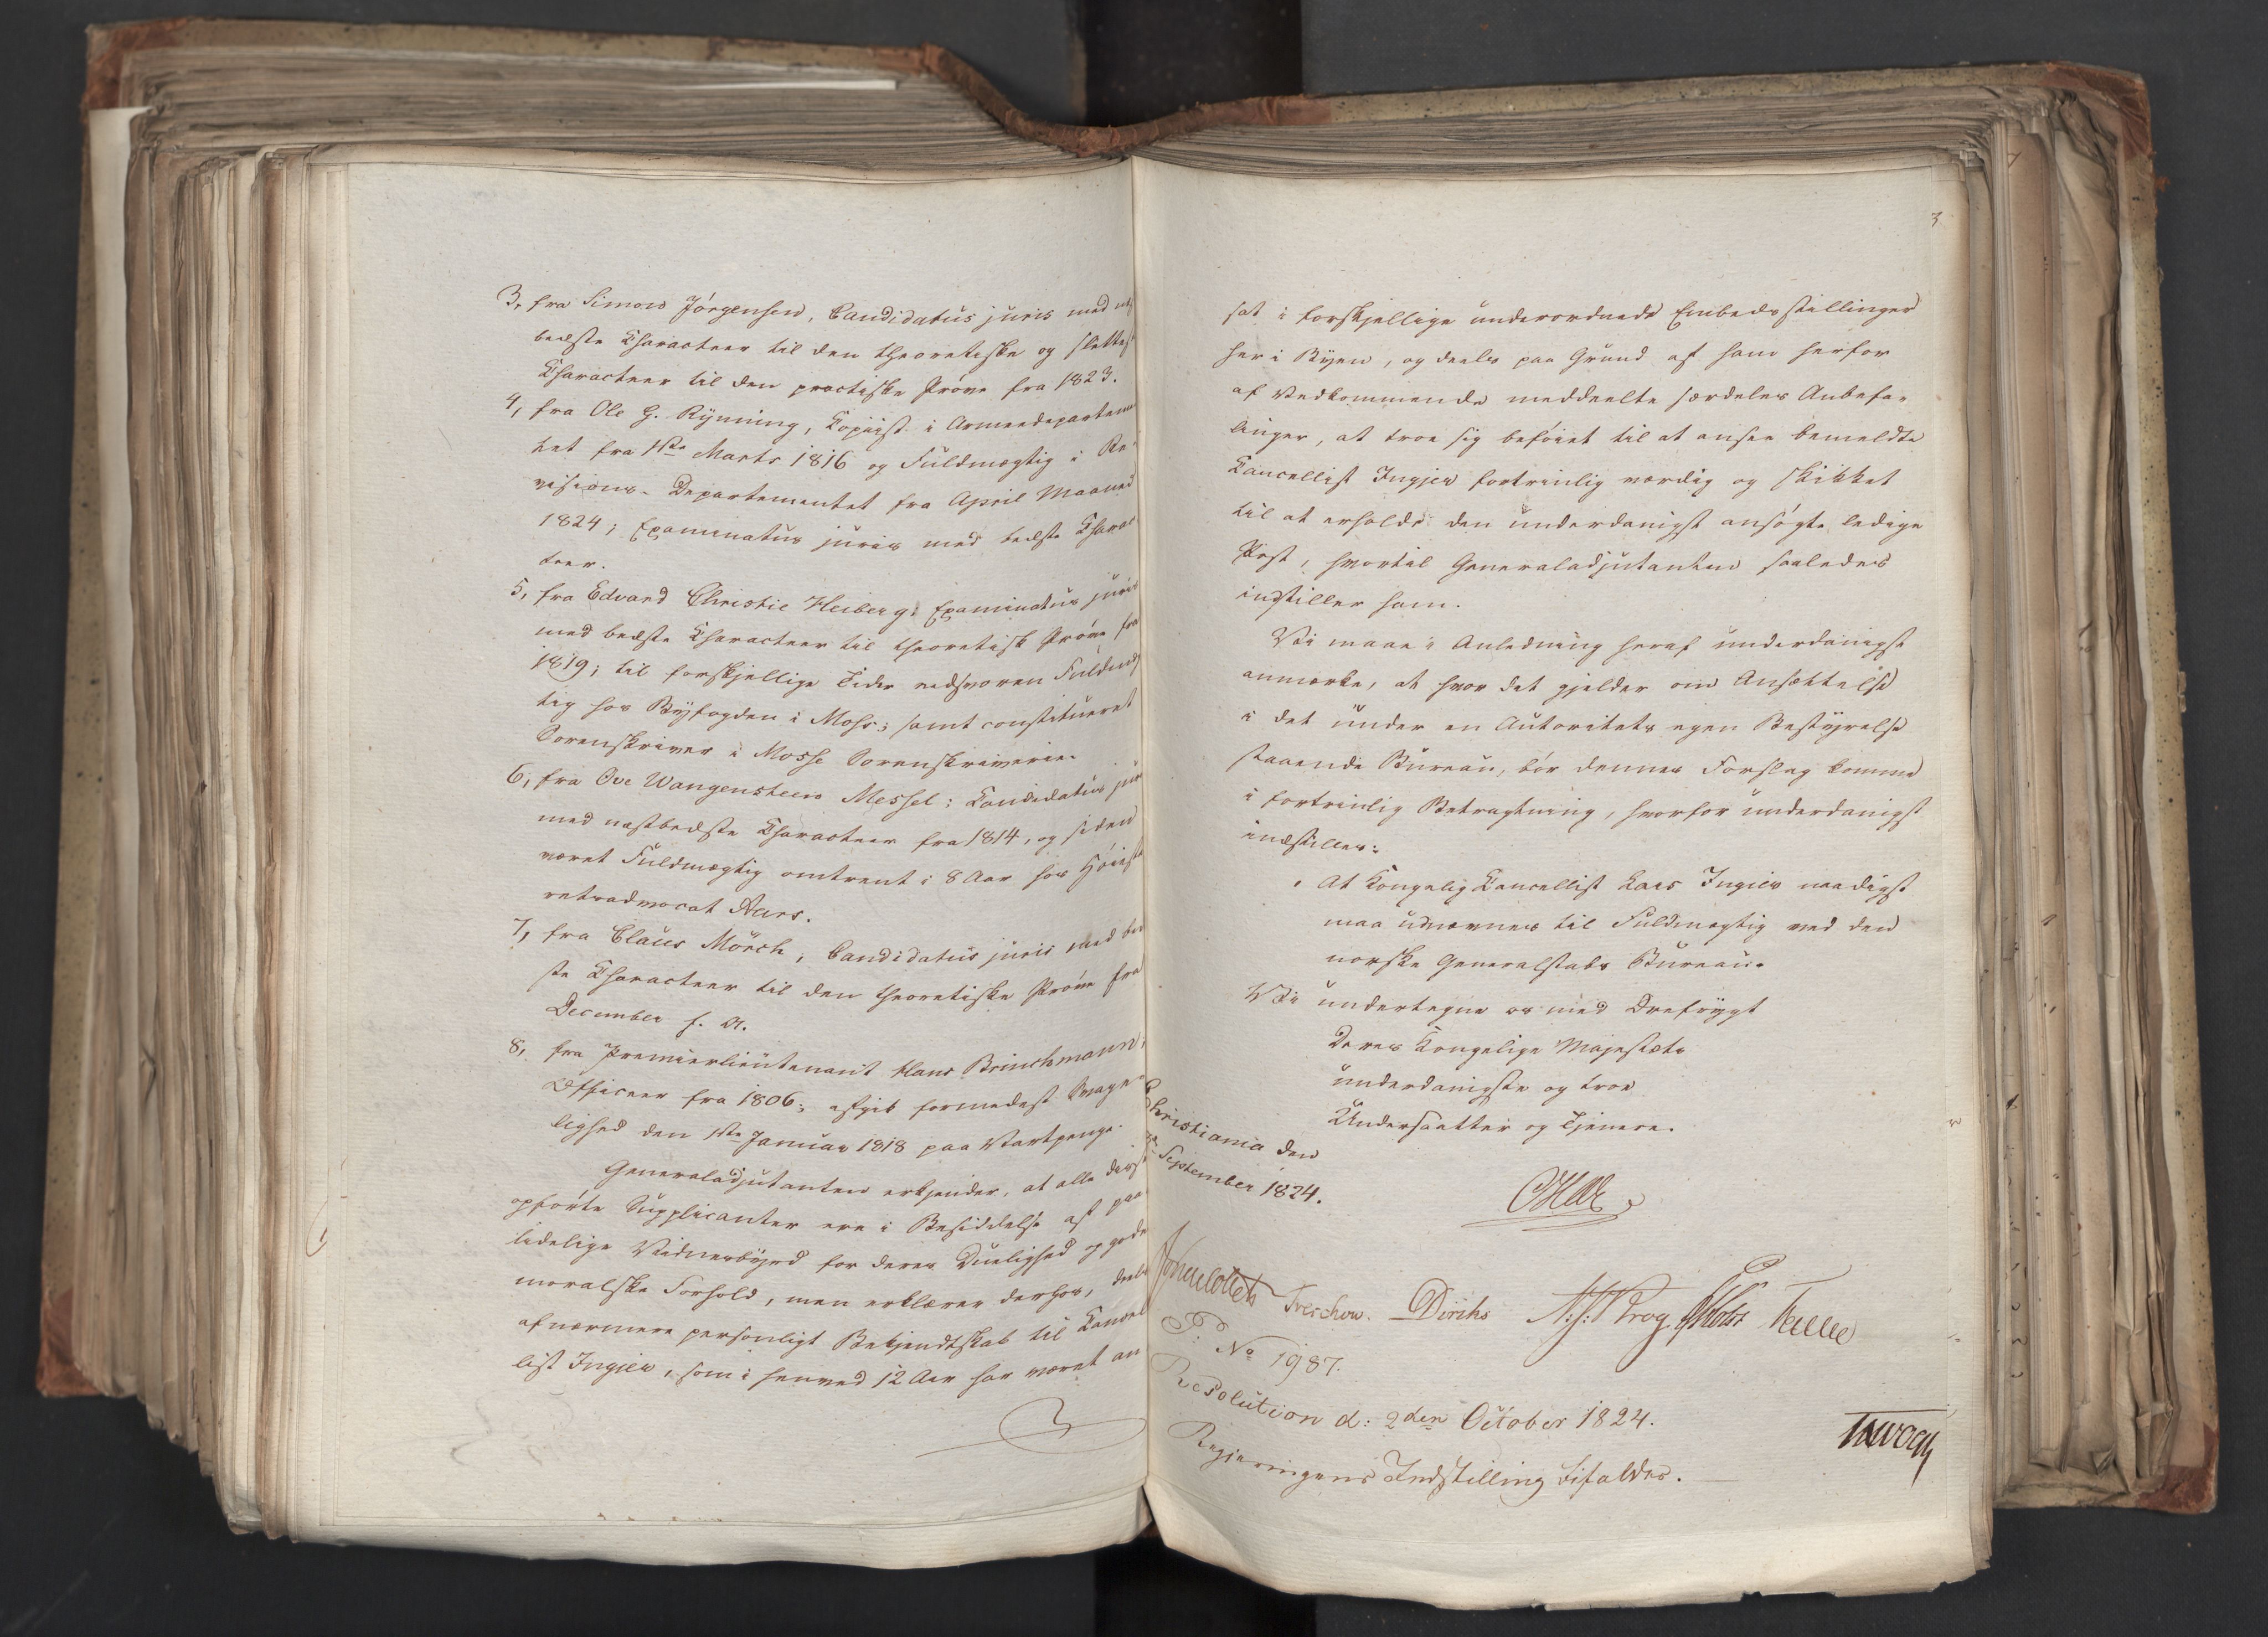 3, fra Simon Jörgensen, Candidatus juris med
bedste Characteer til den theoretiske og slettest
Characteer til den practiske Pröve fra 1823.
4, fra Ole G. Rynning, Copiist i Armeedepartemen
tet fra 1ste Marts 1816 og Fuldmægtig i Re
visions-Departementet fra April Maaned
1824; Examinatus juris med bedste Charac
teer.
5, fra Edvard Christie Heiberg; Examinatus juris
med bedste Characteer til theoretisk Pröve fra
1819; til forskjellige Tider edsvoren Fuldmæg
tig hos Byfogden i Moss; samt constitueret
Sorenskriver i Mosse Sorenskriverie.
6, fra Ove Wangensteen Messel; Candidatus jur
med næstbedste Characteer fra 1814, og siden
været Fuldmægtig omtrent i 8 Aar hos Höieste
retsadvocat Aars.
7, fra Claus Mörch, Candidatus juris med bed
ste Characteer til den theoretiske Pröve fra
December f. A.
8, fra Premierlieutenant Hans Brinchmann,
Officeer fra 1806; afgik formedelst Svage
lighed den 1ste Januar 1818 paa Vartpenge.
Generaladjutanten erkjender, at alle disse
opförte Supplicanter ere i Besiddelse af paa
lidelige Vidnesbyrd for deres Duelighed og gode
moralske Forhold, men erklærer derhos, deels
af nærmere personligt Bekjendtskab til Cancel
list Ingier, som i henved 12 Aar har været an
3
sat i forskjellige underordnede Embedsstillinger
her i Byen, og deels paa Grund af ham herfor
af Vedkommende meddeelte særdeles Anbefa-
linger, at troe sig beföiet til at ansee bemeldte
Cancellist Ingier fortrinlig værdig og skikket
til at erholde den underdanigst ansögte ledige
Post, hvortil Generaladjutanten saaledes
indstiller ham.
Vi maae i Anledning heraf underdanigst
anmærke, at hvor det gjelder om Ansættelse
i det under en Autoritets egen Bestyrelse
staaende Bureau, bör dennes Forslag komme
i fortrinlig Betragtning, hvorfor underdanigst
indstilles:
At Kongelig Cancellist Lars Ingier naadigst
maa udnævnes til Fuldmægtig ved den
norske Generalstabs Bureau.
Vi undertegne os med Ærefrygt
Deres Kongelige Majestæts
underdanigste og troe
Undersaatter og Tjenere.
Christiania den
September 1824.
Jonas Collett Treschow. Diriks A: J: Krog P Holst
P. No 1987.
Resolution d: 2den October 1824.
Regjeringens Indstilling bifaldes.